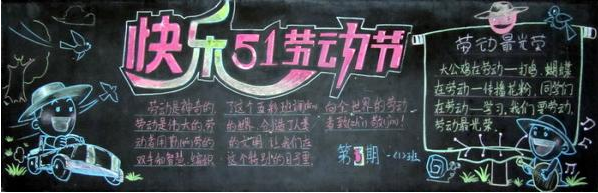 快乐51劳动节
劳动是神奇的,
劳动是伟大的,劳
动者用勤劳的
双手和智慧,编织
了这个五彩班斓的
的世界,创造了人类
的文明。让我们在
这个特别的日子里,
向全世界的劳动
者致以崇敬问!
第3期 一(1)班
劳动最光荣
大公鸡在劳动——打鸣,蝴蝶
在劳动——传播花粉,同学们
在劳动——学习,我们要劳动,
劳动最光荣。